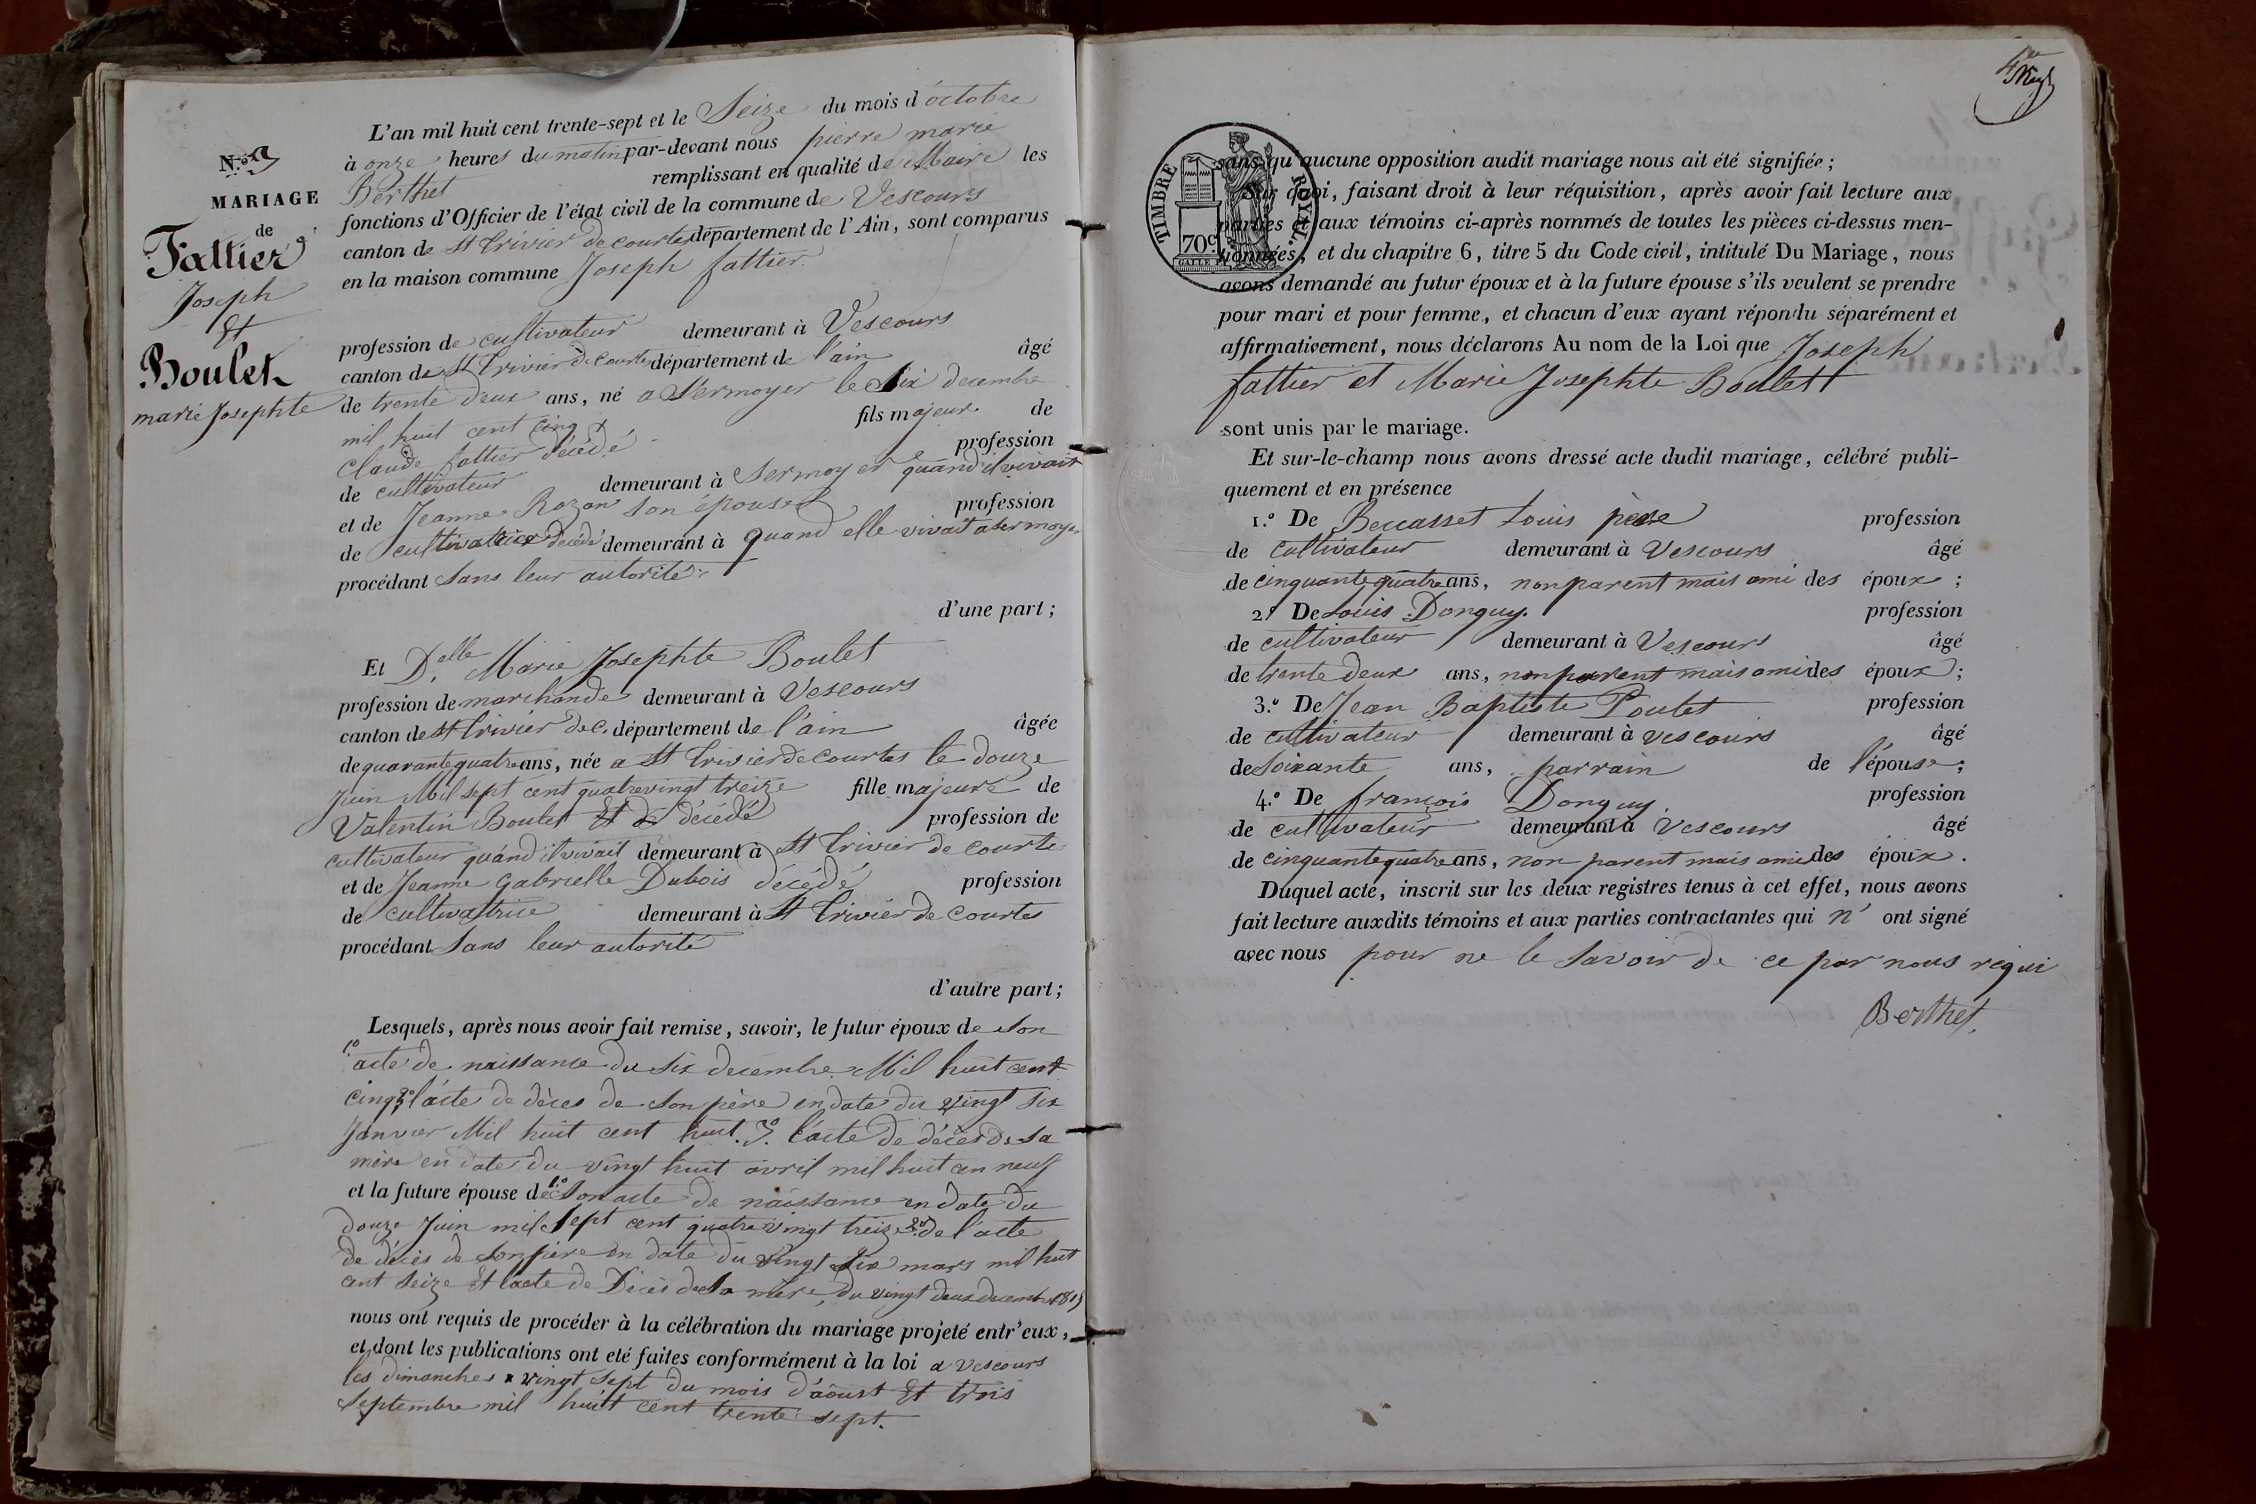 N.º 3
MARIAGE
de
Fattier
Joseph
Et
Boulet
marie Josephte
L'an mil huit cent trente-sept et le Seize du mois d'octobre
à onze heures du matin par-devant nous pierre marie
Berthet remplissant en qualité de Maire les
fonctions d'Officier de l'état civil de la commune de Vescours
canton de St trivier de courtes département de l'Ain, sont comparus
en la maison commune Joseph fattier
profession de cultivateur demeurant à Vescours
canton de St trivier de courtes département de l'ain âgé
de trente deux ans, né a Sermoyer le Six decembre
mil huit cent cinq fils majeur de
Claude fattier décédé profession
de cultivateur demeurant à Sermoyer quand il vivait
et de Jeanne Rozan Son épouse profession
de cultivatrice décédé demeurant à quand elle vivait a Sermoyer
procédant Sans leur autorité
d'une part;
Et D.elle Marie Josephte Boulet
profession de marchande demeurant à Vescours
canton de St trivier de c. département de l'ain âgée
de quarante quatre ans, née a St trivier de courtes le douze
Juin Mil sept cent quatre vingt treize fille majeure de
Valentin Boulet Et de décédé profession de
cultivateur quand il vivait demeurant à St trivier de courte
et de Jeanne Gabrielle Dubois décédé profession
de cultivatrice demeurant à St trivier de Courtes
procédant Sans leur autorité
d'autre part;
Lesquels, après nous avoir fait remise, savoir, le futur époux de Son
1º acte de naissance du Six decembre Mil huit cent
cinq 2º l'acte de décès de Son père en date du vingt Six
Janvier Mil huit cent huit. 3º l'acte de décès de Sa
mère en date du vingt huit avril mil huit cen neuf
et la future épouse de 1º Son acte de naissance en date du
douze Juin mil Sept cent quatre vingt treize 2º de l'acte
de décès de Son père en date du vingt Six mars mil huit
cent Seize Et l'acte de Décès de Sa mère, du vingt deux decembre
nous ont requis de procéder à la célébration du mariage projeté entr'eux,
et dont les publications ont eté faites conformément à la loi a Vescours
les dimanches vingt Sept du mois d'aôust Et trois
Septembre mil huit cent trente sept.
TIMBRE ROYAL.
70c
sans qu'aucune opposition audit mariage nous ait été signifiée;
Sur quoi, faisant droit à leur réquisition, après avoir fait lecture aux
parties et aux témoins ci-après nommés de toutes les pièces ci-dessus men-
tionnées, et du chapitre 6, titre 5 du Code civil, intitulé Du Mariage, nous
avons demandé au futur époux et à la future épouse s'ils veulent se prendre
pour mari et pour femme, et chacun d'eux ayant répondu séparément et
affirmativement, nous déclarons Au nom de la Loi que Joseph
fattier et Marie Josephte Boulet
sont unis par le mariage.
Et sur-le-champ nous avons dressé acte dudit mariage, célébré publi-
quement et en présence
1.º De Beccasset Louis père profession
de cultivateur demeurant à Vescours âgé
de cinquante quatre ans, non parent mais ami des époux;
2.º De Louis Donguy. profession
de cultivateur demeurant à Vescours âgé
de trente deux ans, non parent mais ami des époux;
3.º De Jean Baptiste Poulet profession
de cultivateur demeurant à vescours âgé
de Soixante ans, parrain de l'épouse;
4.º De françois Donguy. profession
de cultivateur demeurant à Vescours âgé
de cinquante quatre ans, non parent mais ami des époux.
Duquel acte, inscrit sur les deux registres tenus à cet effet, nous avons
fait lecture auxdits témoins et aux parties contractantes qui n' ont signé
avec nous pour ne le Savoir de ce par nous requi
Berthet